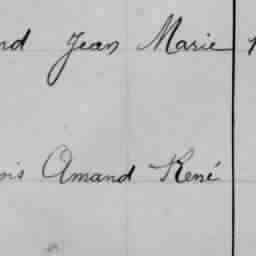 Jean Marie
Amand René